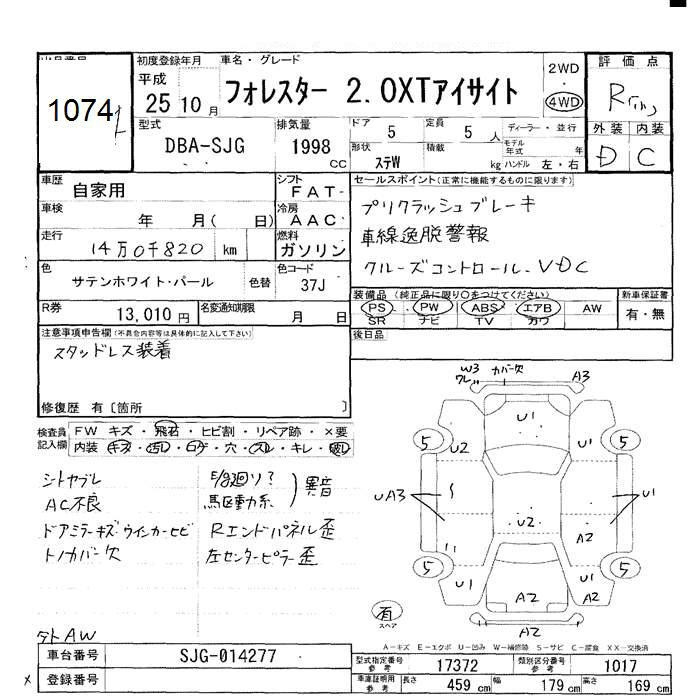 出品番号
1074
初度登録年月
平成
25 10 月
車名・グレード
フォレスター 2.0XTアイサイト
2WD
4WD
評価点
R
外装 内装
D C
型式
DBA-SJG
排気量
1998 CC
ドア 5
定員 5 人
形状 ステW
積載 kg
ディーラー・並行
モデル年式 年
ハンドル 左・右
車歴
自家用
シフト
FAT-
セールスポイント(正常に機能するものに限ります)
プリクラッシュブレーキ
車線逸脱警報
クルーズコントロール、VDC
車検
年 月( 日)
冷房
AAC
走行
14万0千820 km
燃料
ガソリン
色
サテンホワイト・パール
色替
色コード
37J
R券
13,010 円
名変通知期限
月 日
装備品(純正品に限り○をつけてください)
PS PW ABS エアB AW
SR ナビ TV カワ
新車保証書
有・無
後日品
注意事項申告欄(不具合内容等は具体的に記入して下さい)
スタッドレス装着
修復歴 有〔箇所 〕
検査員記入欄
FW キズ・飛石・ヒビ割・リペア跡・×要
内装 キズ・汚レ・コゲ・穴・スレ・キレ・破レ
シトヤブレ
AC不良
ドアミラーキズ・ウインカーヒビ
トノカバー欠
駆動系
異音
Rエンドパネル歪
左センターピラー歪
タトAW
W3
ワレ
カバー欠
A3
U1
5
5
U2
UA3
U1
U2
A2
5
5
U1
U1
A2
A2
有
スペア
A-キズ E-エクボ U-凹み W-補修跡 S-サビ C-腐食 XX-交換済
車台番号
SJG-014277
登録番号
型式指定番号 参考
17372
類別区分番号 参考
1017
車庫証明用 参考
長さ 459 cm
幅 179 cm
高さ 169 cm